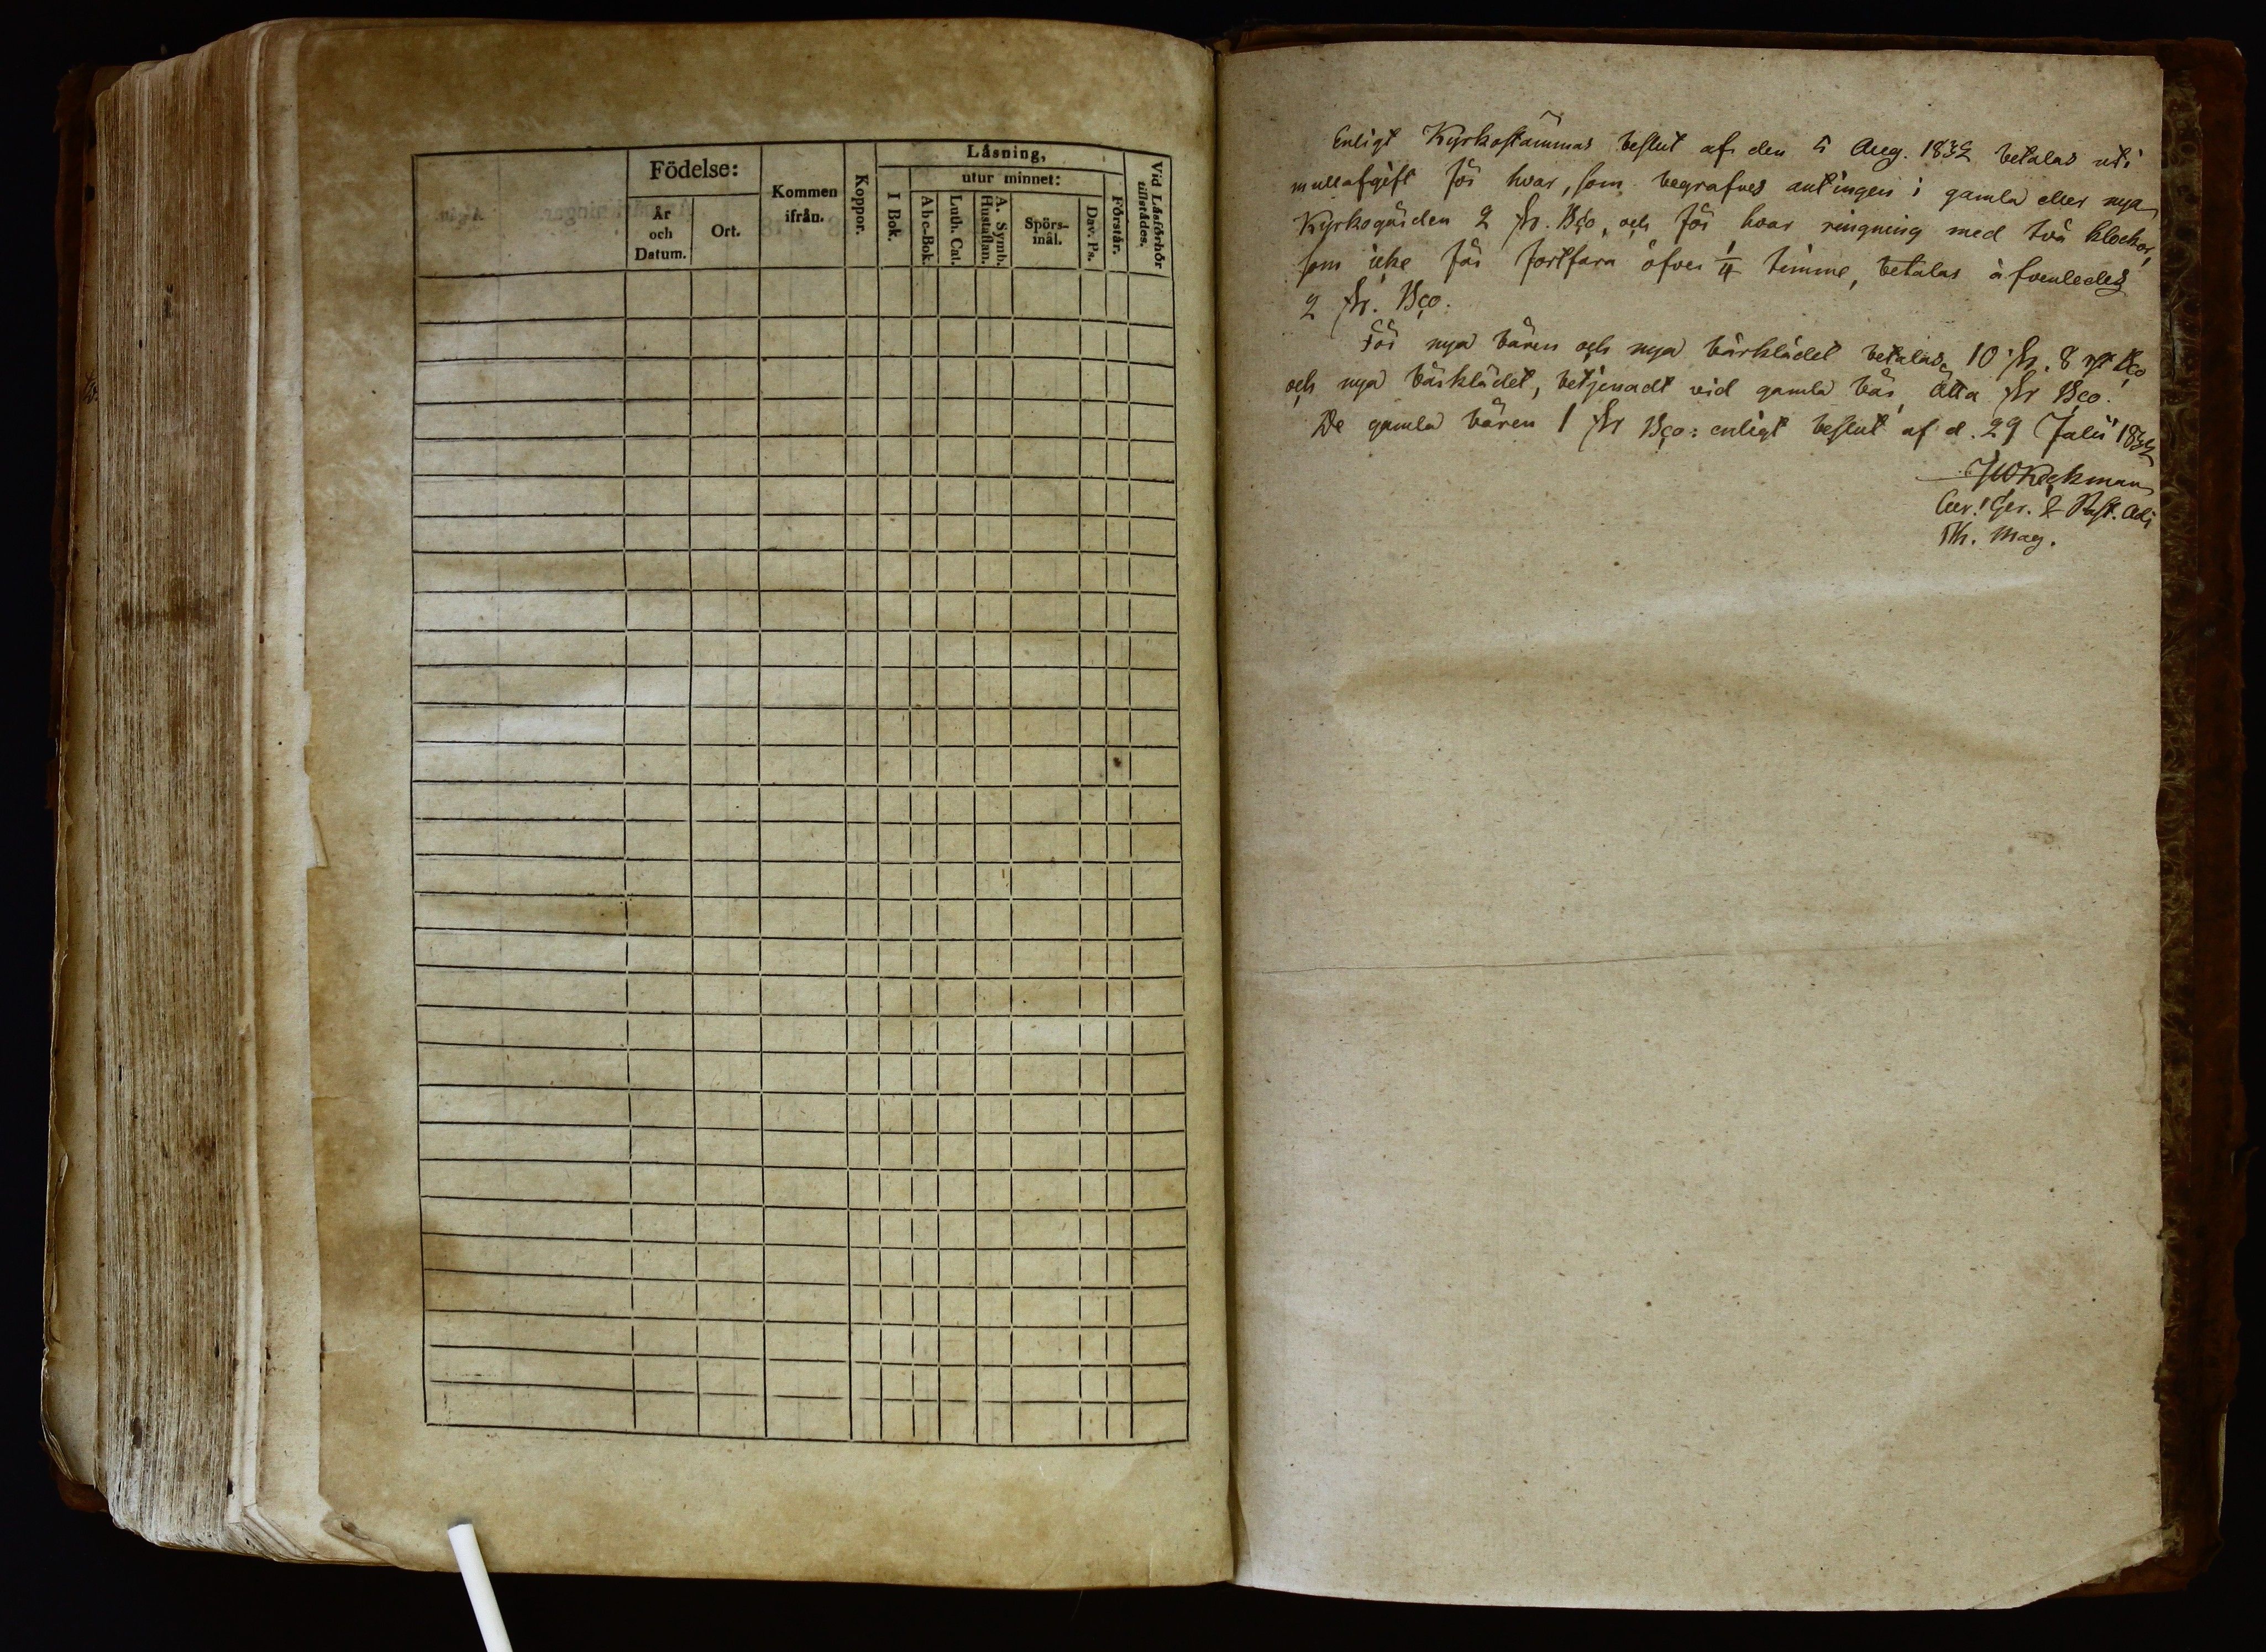 Födelse:
År
och
Datum.
Ort.
Kommen
ifrån.
Koppor.
Läsning,
I Bok.
utur minnet:
Abc-Bok.
Luth. Cat.
A. Symb.
Hustaflan.
Spörs-
mål.
Dav. Ps.
Förstår.
Vid Läsförhör
tillstädes.
Enligt Kyrkostämmas beslut af den 5 Aug. 1832 betalas uti
mullafgift för hvar, som begrafves antingen i gamla eller nya
Kyrkogården 2 Sk. Bco, och för hvar ringning med två klockor,
som icke får fortfara öfver 1/4 timme, betalas äfvenledes
2 Sk. Bco.
För nya bären och nya bårklädet betalas 10 Sk. 8 rst Bco
och nya bårklädet, betjenadt vid gamla bår, åtta Sk Bco.
De gamla båren 1 Sk Bco: enligt beslut af d. 29 Julii 1832
Past. Adj
Th. Mag.